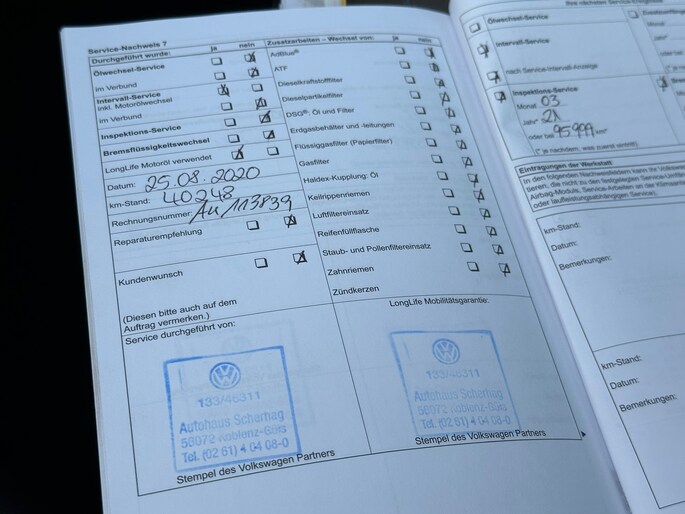 Service-Nachweis 7
Durchgeführt wurde: ja nein
Ölwechsel-Service
im Verbund
Intervall-Service
inkl. Motorölwechsel
im Verbund
Inspektions-Service
Bremsflüssigkeitswechsel
LongLife Motoröl verwendet
Datum: 25.08.2020
km-Stand: 40248
Rechnungsnummer: AU/113839
Reparaturempfehlung
Kundenwunsch
(Diesen bitte auch auf dem
Auftrag vermerken.)
Service durchgeführt von:
133/46311
Autohaus Scherhag
56072 Koblenz-Güls
Tel. (02 61) 4 04 08-0
Stempel des Volkswagen Partners
Zusatzarbeiten – Wechsel von: ja nein
AdBlue®
ATF
Dieselkraftstofffilter
Dieselpartikelfilter
DSG®: Öl und Filter
Erdgasbehälter und -leitungen
Flüssiggasfilter (Papierfilter)
Gasfilter
Haldex-Kupplung: Öl
Keilrippenriemen
Luftfiltereinsatz
Reifenfüllflasche
Staub- und Pollenfiltereinsatz
Zahnriemen
Zündkerzen
LongLife Mobilitätsgarantie:
133/46311
Autohaus Scherhag
56072 Koblenz-Güls
Tel. (02 61) 4 04 08-0
Stempel des Volkswagen Partners
Ölwechsel-Service
Intervall-Service
nach Service-Intervall-Anzeige
Inspektions-Service
Monat 03
Jahr* 21
oder bei 95999 km*
(* je nachdem, was zuerst eintritt)
Eintragungen der Werkstatt:
km-Stand:
Datum:
Bemerkungen:
km-Stand:
Datum:
Bemerkungen: